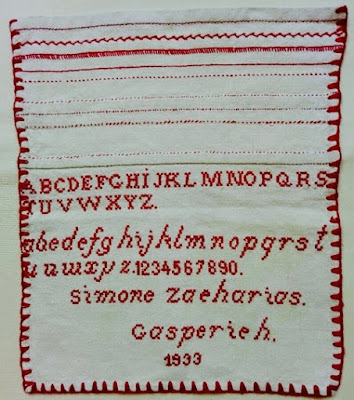 ABCDEFGHIJKLMNOPQRS
TUVWXYZ.
abcdefghijklmnopqrst
uvwxyz.1234567890.
Simone Zacharias.
Gasperich.
1933